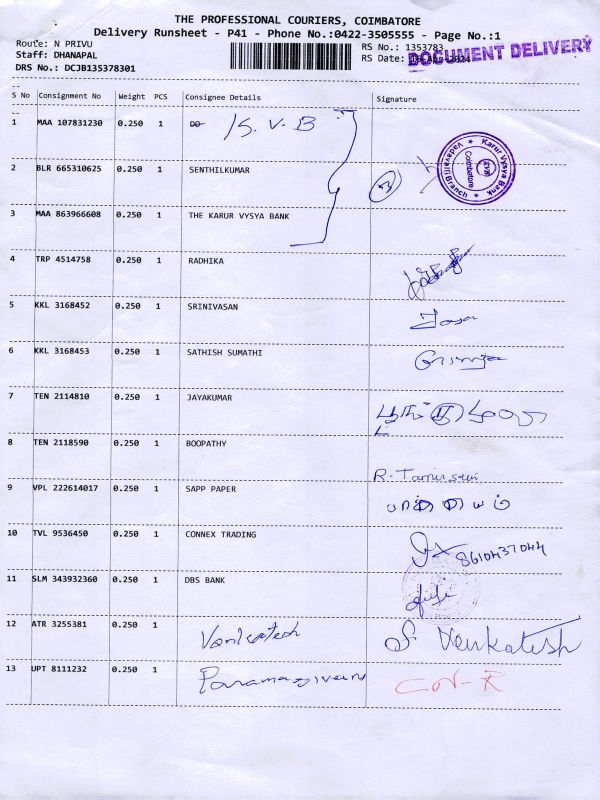 THE PROFESSIONAL COURIERS, COIMBATORE
Delivery Runsheet - P41 - Phone No.:0422-3505555 - Page No.:1
Route: N PRIVU
RS No.: 1353783
Staff: DHANAPAL
RS Date:
DOCUMENT DELIVERY
DRS No.: DCJB135378301
S No Consignment No Weight PCS Consignee Details Signature
1 MAA 107831230 0.250 1 DO /S. V. B
2 BLR 665310625 0.250 1 SENTHILKUMAR
Karur Vysya Bank
Coimbatore
KVB
Vadavalli Branch
3 MAA 863966608 0.250 1 THE KARUR VYSYA BANK
4 TRP 4514758 0.250 1 RADHIKA
5 KKL 3168452 0.250 1 SRINIVASAN
6 KKL 3168453 0.250 1 SATHISH SUMATHI
7 TEN 2114810 0.250 1 JAYAKUMAR
8 TEN 2118590 0.250 1 BOOPATHY
9 VPL 222614017 0.250 1 SAPP PAPER
10 TVL 9536450 0.250 1 CONNEX TRADING 8610437044
11 SLM 343932360 0.250 1 DBS BANK
12 ATR 3255381 0.250 1 Venkatesh S. Venkatesh
13 UPT 8111232 0.250 1 Paramasivam